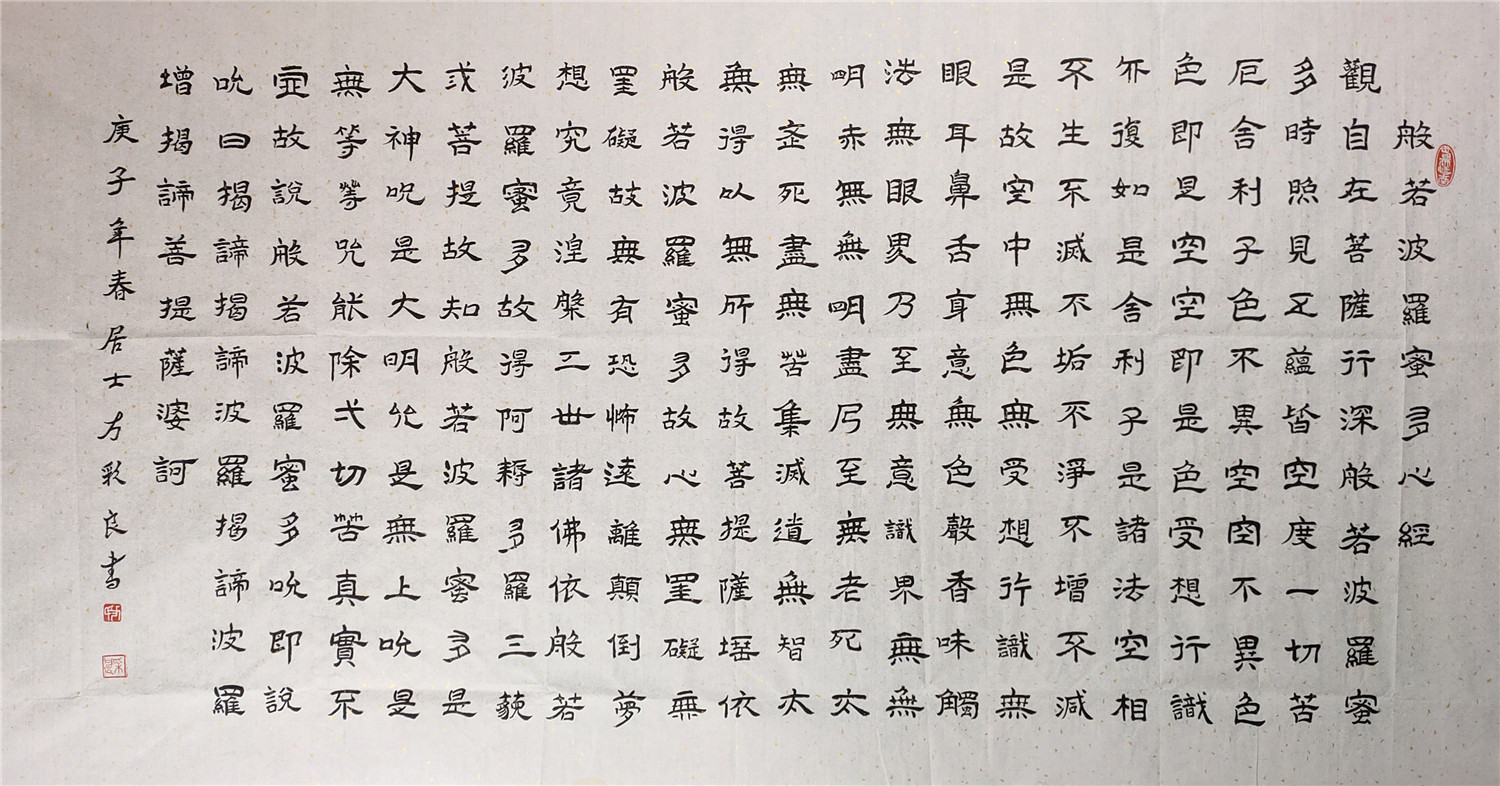 般若波羅蜜多心經
觀自在菩薩行深般若波羅蜜
多時照見五蘊皆空度一切苦
厄舍利子色不異空空不異色
色即是空空即是色受想行識
亦復如是舍利子是諸法空相
不生不滅不垢不淨不增不減
是故空中無色無受想行識無
眼耳鼻舌身意無色聲香味觸
法無眼界乃至無意識界無無
明亦無無明盡乃至無老死亦
無老死盡無苦集滅道無智亦
無得以無所得故菩提薩埵依
般若波羅蜜多故心無罣礙無
罣礙故無有恐怖遠離顛倒夢
想究竟涅槃三世諸佛依般若
彼羅蜜多故得阿耨多羅三藐
弎菩提故知般若波羅蜜多是
大神咒是大明咒是無上咒是
無等等咒能除弌切苦真實不
虛故說般若波羅蜜多咒即說
咒曰揭諦揭諦波羅揭諦波羅
增揭諦菩提薩婆訶
庚子年春居士方彩良書